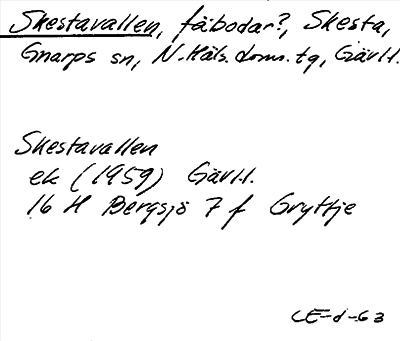 Skestavallen, fäbodar?, Skesta,
Gnarps sn, N. Häls. doms. tg, Gävl.l.
Skestavallen
ek (1959) Gävl.l.
16 H Bergsjö 7 f Gryttje
CE-d-63